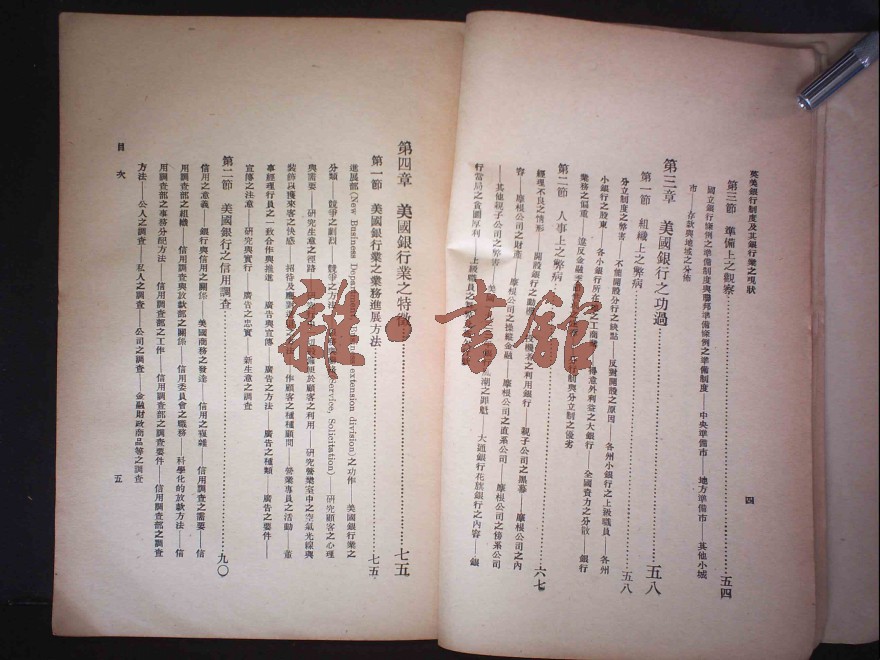 英美銀行制度及其銀行業之現狀
四
第三節 準備上之觀察……五四
國立銀行條例之準備制度與聯邦準備條例之準備制度——中央準備市——地方準備市——其他小城
市——存款與地域之分佈
第三章 美國銀行之功過……五八
第一節 組織上之弊病……五八
分立制度之弊害——不能開設分行之缺點——反對開設之原因——各州小銀行之上級職員——各州
小銀行之股東——各小銀行所在 之工商 得意外利益之大銀行——全國資力之分散——銀行
業務之偏重——違反金融 行制與分立制之優劣
第二節 人事上之弊病……六七
經理不良之情形——開設銀行之動機 投機者之利用銀行——親子公司之黑幕——摩根公司之內
容——摩根公司之財產——摩根公司之操縱金融——摩根公司之直系公司——摩根公司之傍系公司
——其他親子公司之弊害——美 潮之罪魁——大通銀行花旗銀行之內容——銀
行當局之貪圖厚利——上級職員之
第四章 美國銀行業之特徵……七五
第一節 美國銀行業之業務進展方法……七五
進展部(New Business Department, Business extension division)之功作——美國銀行業之
分類——競爭之劇烈——競爭之方法 Service, Solicitation)——研究顧客之心理
與需要——研究生意之徑路 切設備便於顧客之利用——研究營業室中之空氣光線與
裝飾以獲來客之快感——招待及應 作顧客之種種顧問——營業專員之活動——董
事經理行員之一致合作與推進——廣告與宣傳——廣告之方法——廣告之種類——廣告之要件——
宣傳之注意——研究與實行——廣告之忠實——新生意之調查
第二節 美國銀行之信用調查……九〇
信用之意義——銀行與信用之關係——美國商務之發達——信用之複雜——信用調查之需要——信
用調查部之組織——信用調查與放款部之關係——信用委員會之職務——科學化的放款方法——信
用調查部之事務分配方法——信用調查部之工作——信用調查部之調查要件——信用調查部之調查
方法——公人之調查——私人之調查——公司之調查——金融財政商品等之調查
目次
五
雜·書館